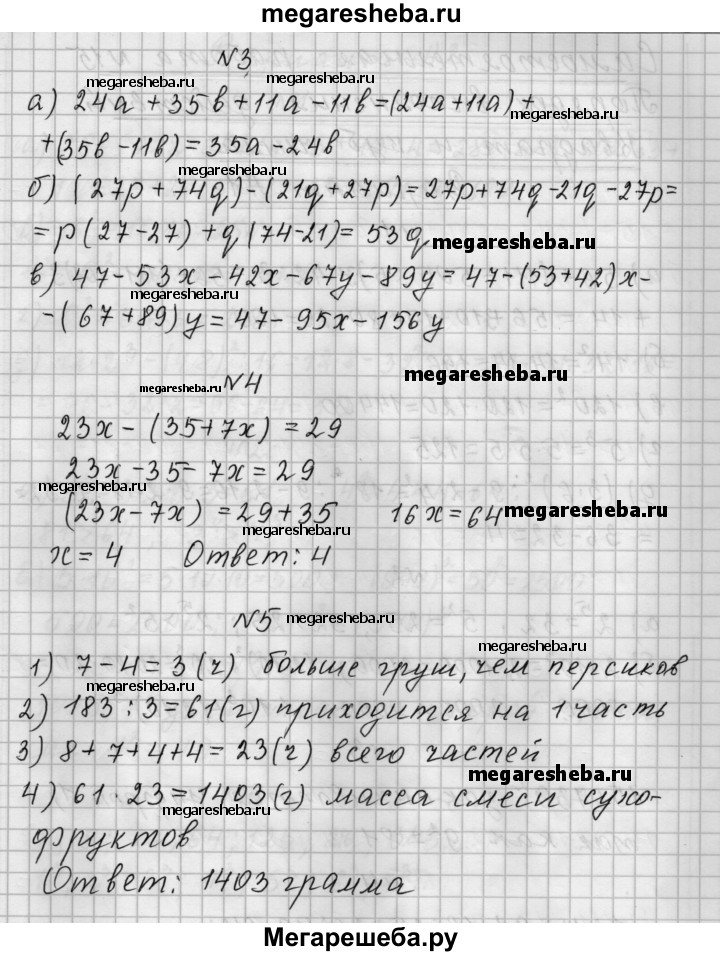 megaresheba.ru
N3
megaresheba.ru megaresheba.ru
а) 24a + 35в + 11a - 11в = (24a + 11a) +
megaresheba.ru
+ (35в - 11в) = 35a - 24в
megaresheba.ru
б) (27p + 74q) - (21q + 27p) = 27p + 74q - 21q - 27p =
= p(27 - 27) + q(74 - 21) = 53q
megaresheba.ru
в) 47 - 53x - 42x - 67y - 89y = 47 - (53 + 42)x -
megaresheba.ru
- (67 + 89)y = 47 - 95x - 156y
megaresheba.ru N4 megaresheba.ru
23x - (35 + 7x) = 29
23x - 35 - 7x = 29
megaresheba.ru
(23x - 7x) = 29 + 35 16x = 64 megaresheba.ru
megaresheba.ru
x = 4 Ответ: 4
N5 megaresheba.ru
megaresheba.ru
1) 7 - 4 = 3 (ч) больше груш, чем персиков
megaresheba.ru
2) 183 : 3 = 61 (г) приходится на 1 часть
3) 8 + 7 + 4 + 4 = 23 (ч) всего частей
megaresheba.ru
4) 61 · 23 = 1403 (г) масса смеси сухо-
megaresheba.ru
фруктов
Ответ: 1403 грамма
megaresheba.ru
Мегарешеба.ру